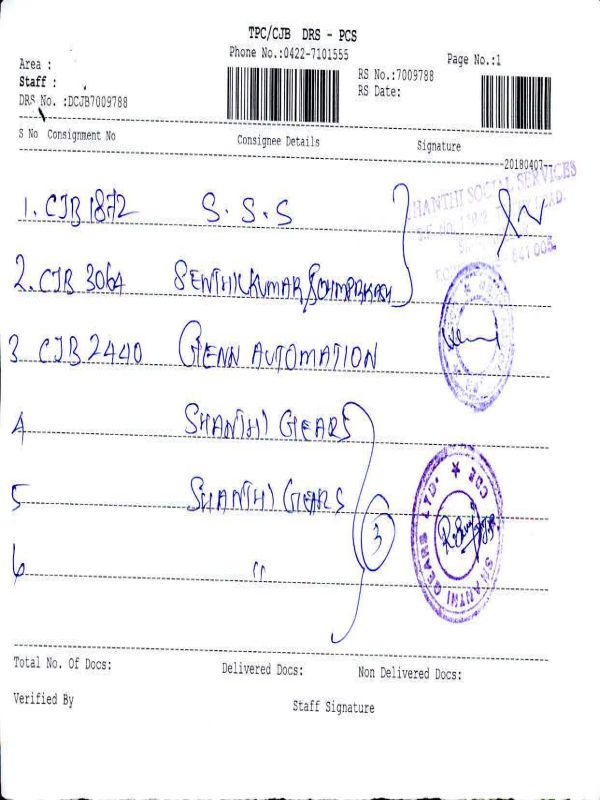 TPC/CJB DRS - PCS
Phone No.:0422-7101555
Page No.:1
Area :
RS No.:7009788
Staff :
RS Date:
DRS No. :DCJB7009788
S No Consignment No Consignee Details Signature
20180407
1. CJB 1872 S. S. S
SHANTHI SOCIAL SERVICES
641 005.
2. CJB 3064 SENTHILKUMAR
3 CJB 2440 GLENN AUTOMATION
4 SHANTHI GEARS
5 SHANTHI GEARS
3
6 "
SHANTHI GEARS
Total No. Of Docs: Delivered Docs: Non Delivered Docs:
Verified By Staff Signature